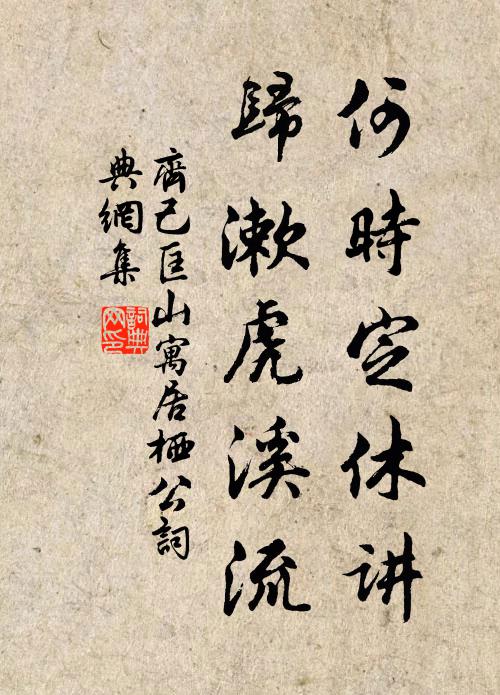 何時定休讲
歸漱虎溪流
齊己匡山寓居栖公詞
典網集
詞典
网印